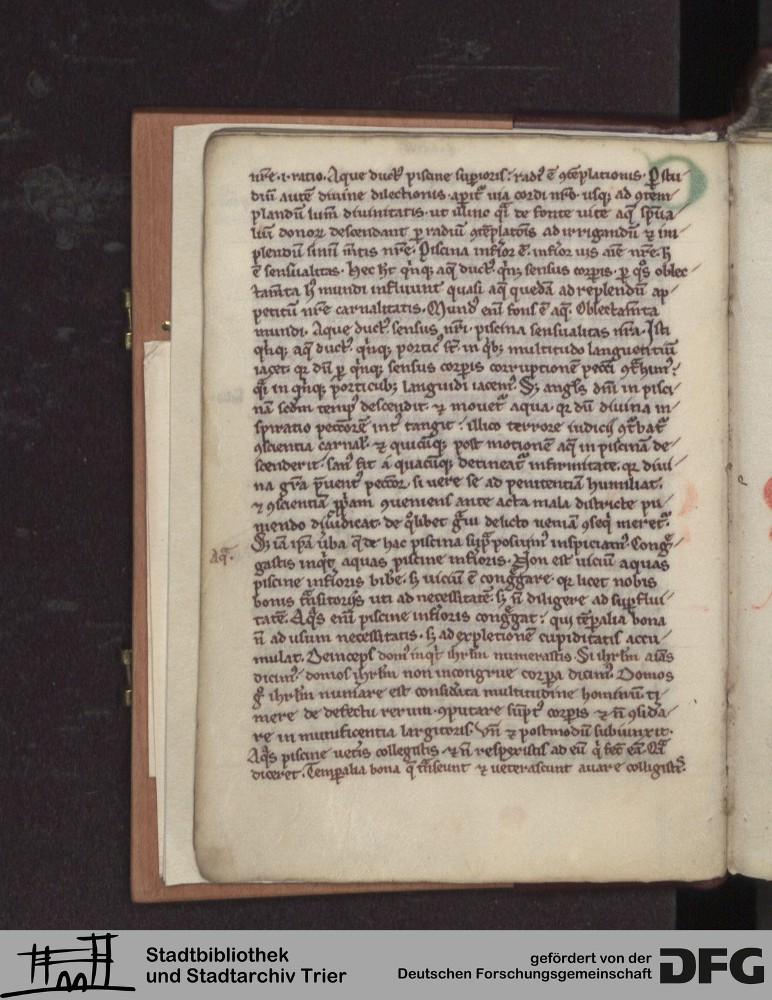 nr̄e .i. ratio. Aque duct⁹ piscine supioris: radi⁹ ē ↄtēplationis. P stu
diū autē divine dilectionis. apit̄ uia cordi nr̄o. usq; ad ↄtem
plandū lum̄ divinitatis. ut illinc q̄i de fonte vite aq̄ spūa
liū donoꝝ descendant p radiū ↄtēplatōis ad irrigandū ⁊ im
plendū sinū m̄tis nr̄e. Piscina inferior ē. inferior uis aīe nr̄e. h̄
ē sensualitas. Hec h̄t qnq; aq̄ duct⁹. qnq; sensus corpis. p qͦs oblec
tam̄ta h⁹ mundi influunt quasi aq̄ quedā ad replendū ap
petitū nr̄e carnalitatis. Mund⁹ enī fons ē aq̄. Oblectam̄ta
mundi. Aque duct⁹. sensus nr̄i. piscina sensualitas nr̄a. Isti
qnq; aq̄ duct⁹. qnq; portic⁹ st̄. in qb; multitudo languentiū
iacet. qꝛ dū p qnq; sensus corpis corruptionē pecci ↄt̄him⁹:
q̄i in qnq; porticub; languidi iacem⁹. S; angls dn̄i in pisci
nā scdm̄ temp⁹ descendit. ⁊ mouet̄ aqua. qꝛ dū divina in
spiratio peccorē int⁹ tangit: illico terrore iudicii ↄt̄bat̄
ↄscientia carnal⁹. ⁊ quicūq; post motionē aq̄ in piscinā de
scenderit. san⁹ fit a quacūq; detineat̄ infirmitate. qꝛ divi
na gr̄a p̄uent⁹ peccor. si vere se ad penitentiā humiliat.
⁊ ↄscientiā ppam ↄueniens ante acta mala districte pu
niendo diiudicat. de qͦlibet g̊ui delicto veniā ↄseq̄ meret̄.
S; iā ipā ūba q̄ de hac piscina sup̄ posuim⁹ inspiciam⁹. Cong̊
gastis inqt̄ aquas piscine inferioris. Non est uiciū aquas
piscine inferioris bibe. s; uiciū ē cong̊gare. qꝛ licet nobis
bonis t̄nsitoriis uti ad necessitatē. s; n̄ diligere ad supflui
tatē. Aqͣs enī piscine inferioris cong̊gat: qui tēpalia bona
n̄ ad usum necessitatis. s; ad expletionē cupiditatis accu
mulat. Deinceps domͦ inqt̄ ihrl̄m numerastis. Si ihrl̄m aīas
dicim⁹. domos ihrl̄m non incongrue corpa dicim⁹. Domos
g̊ ihrl̄m num̄are est considata multitudine hominū ti
mere de defectu rerum. ↄputare supt⁹ corpis ⁊ n̄ ↄsida
re in munificentia largitoris. Vn̄ ⁊ postmodū subiunxit.
Aqͣs piscine vetis collegistis. ⁊ n̄ respexistis ad eū q̄ fec̄ eā. Q̄i
diceret. Tempalia bona q̄ t̄nseunt ⁊ veterascunt avare colligistis.
Aq̄.
Stadtbibliothek
und Stadtarchiv Trier
gefördert von der
Deutschen Forschungsgemeinschaft
DFG